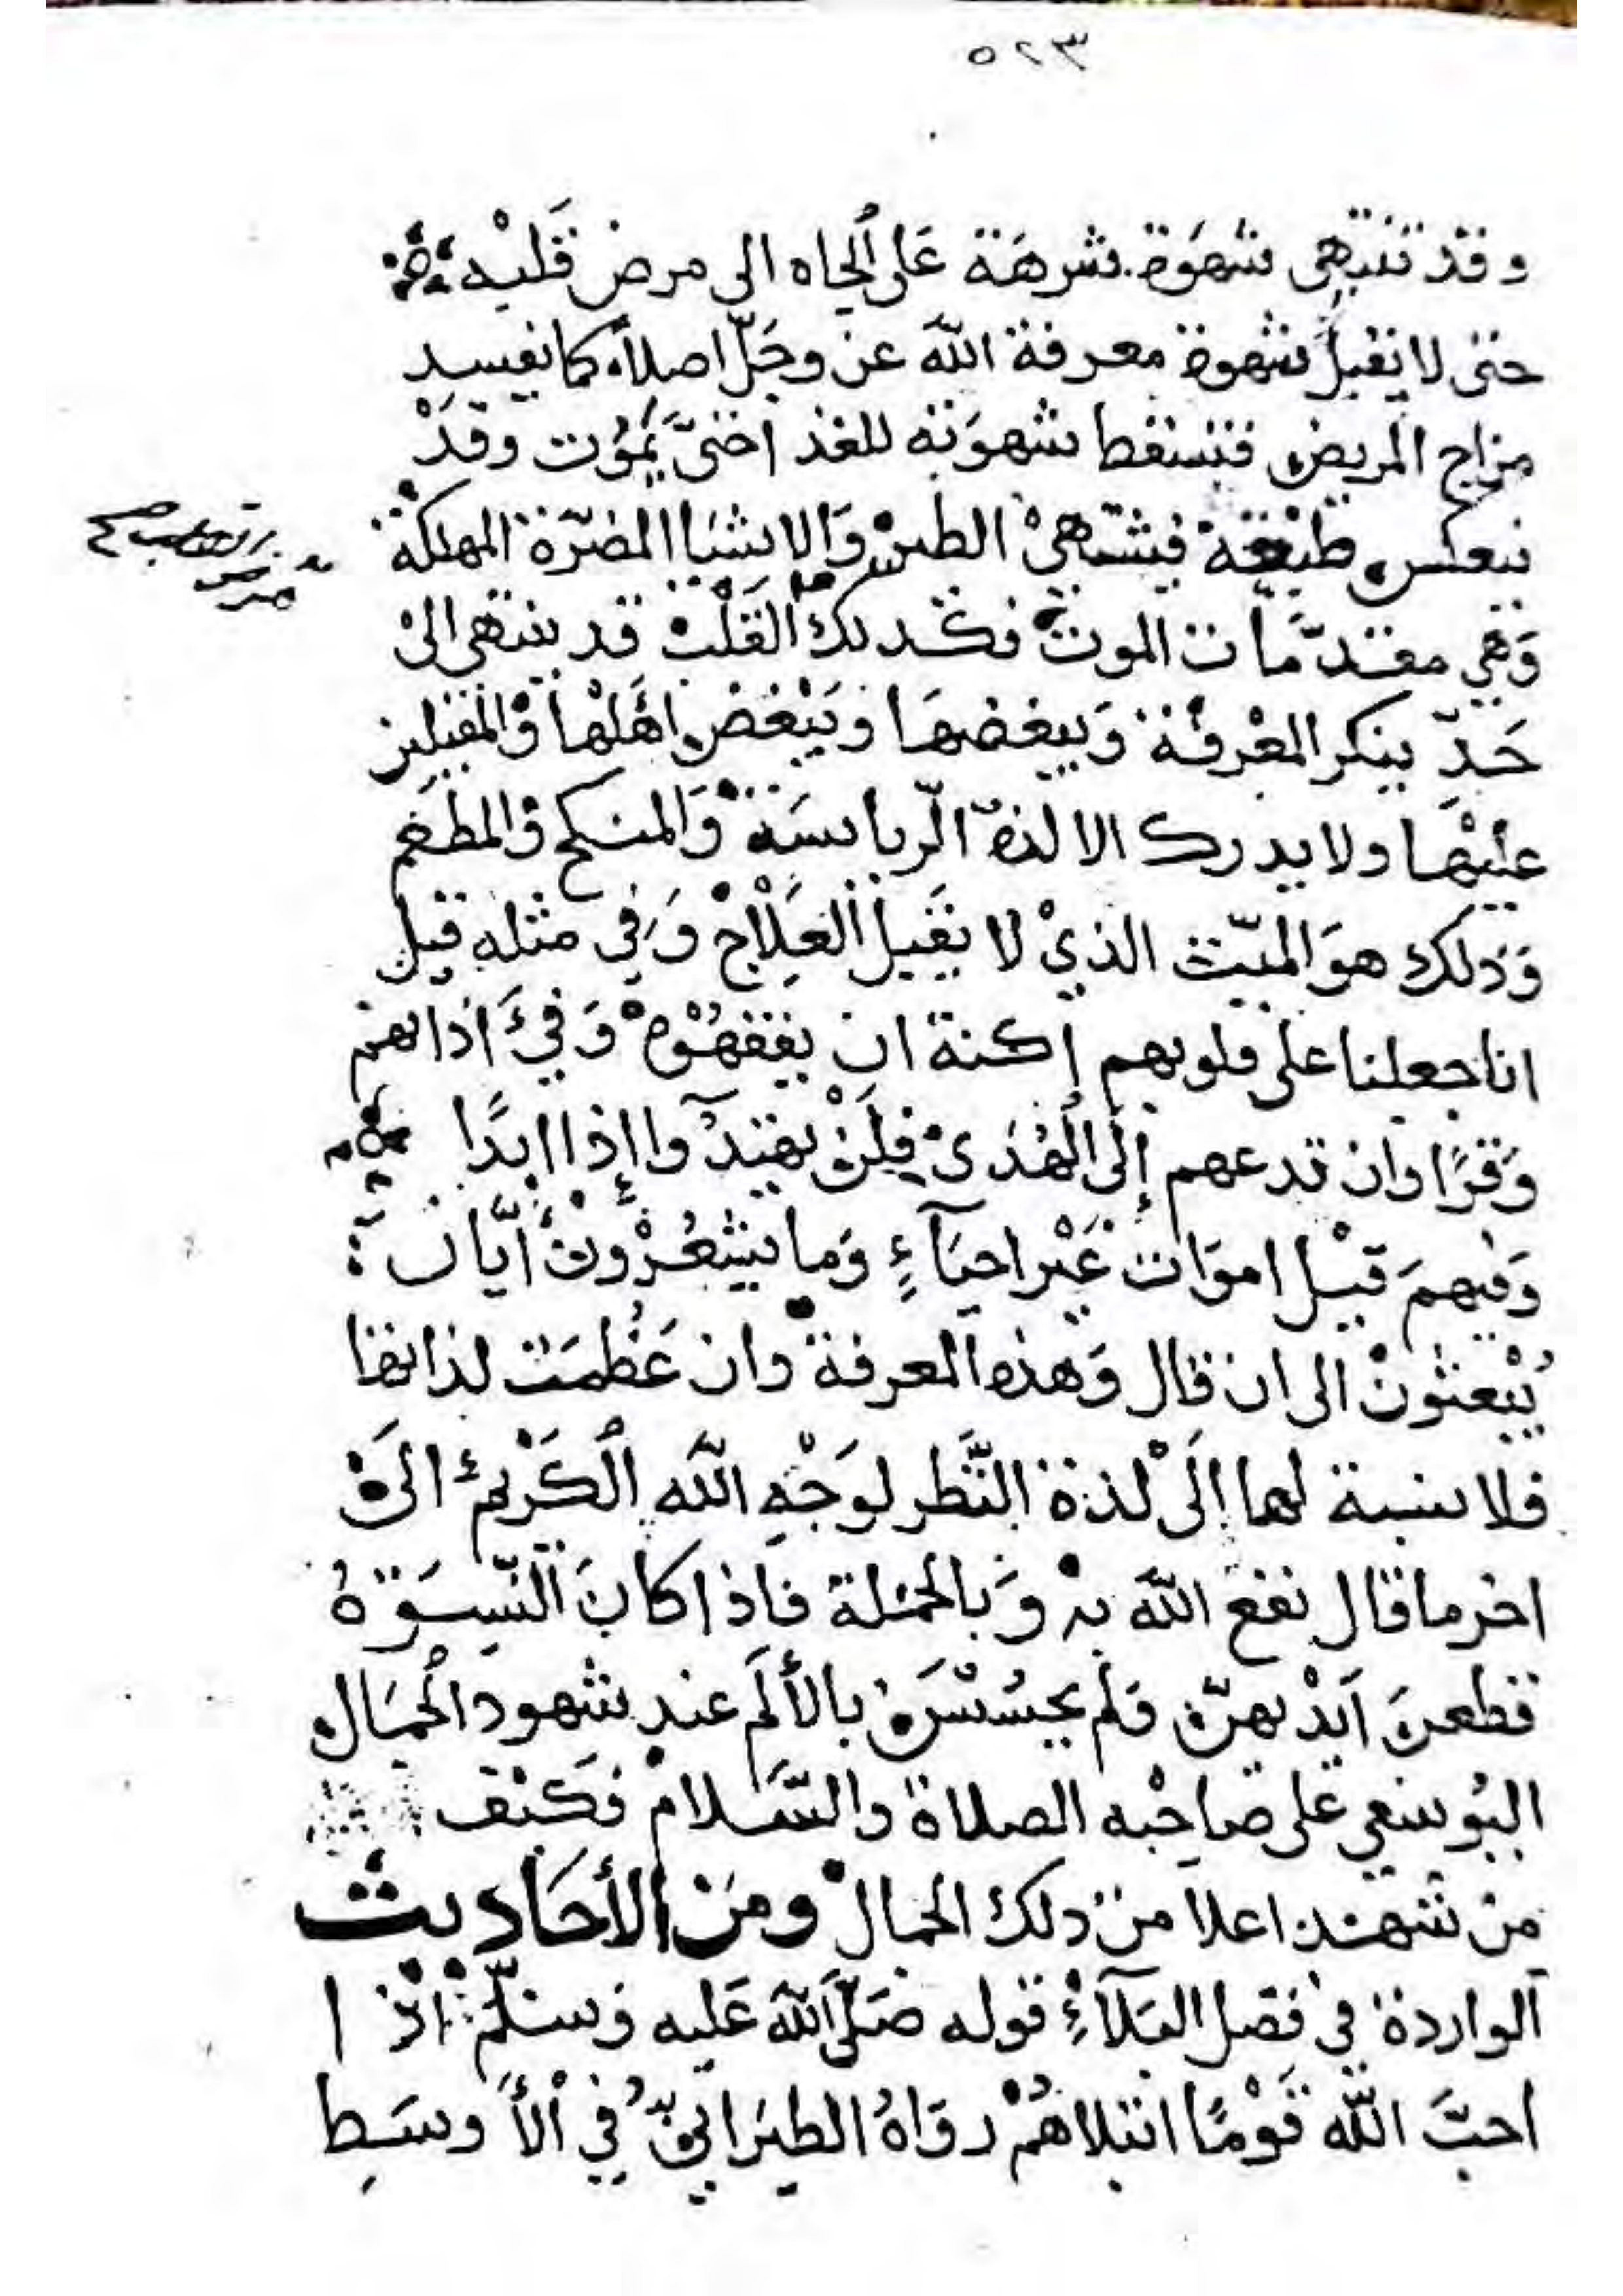 ٥٢٣
وقد تنتهي شهوة شرهة على الجاه الى مرض قلبه
حتى لا يقبل شهوة معرفة الله عز وجل اصلا كما يفسد
مزاج المريض فتسقط شهوته للغذ احتى يموت وقد
ينعكس طبعه فيشتهي الطين والاشيا المضرة المهلكة
وهي مقدمات الموت فكذلك القلب قد ينتهي الى
حد ينكر المعرفة ويبغضها ويبغض اهلها والمقبلين
عليها ولا يدرك الا لذة الرياسة والمنكح والمطعم
وذلك هو الميت الذي لا يقبل العلاج وفي مثله قيل
انا جعلنا على قلوبهم اكنة ان يفقهوه وفي اذانهم
وقرا وان تدعهم إلى الهدى فلن يهتدوا إذا ابدا
وفيهم قيل اموات غير احياء وما يشعرون أيان
يبعثون الى ان قال وهذه المعرفة وان عظمت لذاتها
فلا نسبة لها إلى لذة النظر لوجه الله الكريم الى
اخر ما قال نفع الله به وبالجملة فاذا كان النسوة
قطعن ايديهن ولم يحسسن بالألم عند شهود الجمال
اليوسفي على صاحبه الصلاة والسلام فكيف
من شهد اعلا من ذلك الجمال ومن الأحاديث
الواردة في فضل البلاء قوله صلى الله عليه وسلم اذا
احب الله قوما ابتلاهم رواه الطبراني في الأوسط